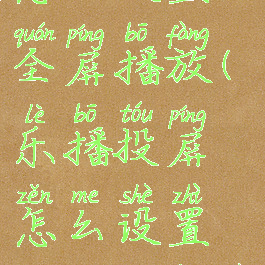 quán píng bō fàng
全屏播放(
lè bō tóu píng
乐播投屏
zěn me shè zhì
怎么设置